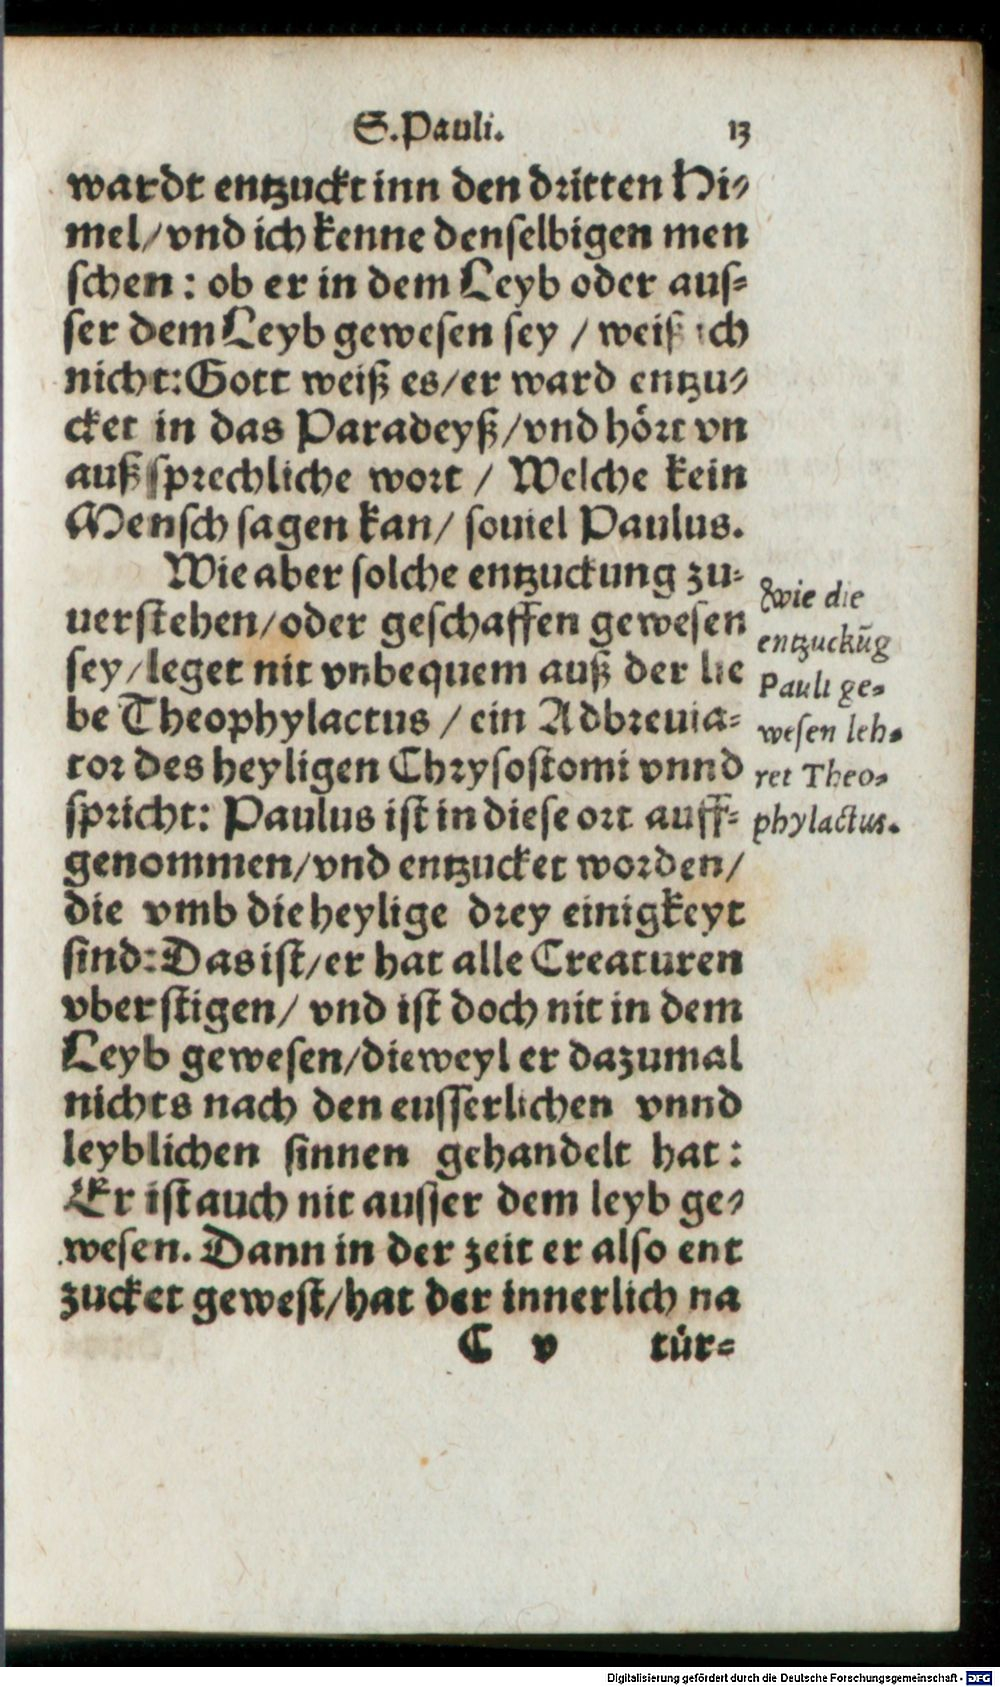 S. Pauli. 13
wardt entzuckt inn den dritten Hi-
mel/ vnd ich kenne denselbigen men
schen: ob er in dem Leyb oder aus-
ser dem Leyb gewesen sey / weiß ich
nicht: Gott weiß es/ er ward entzu-
cket in das Paradeyß/ vnd hört vn
außsprechliche wort / Welche kein
Mensch sagen kan/ souiel Paulus.
Wie aber solche entzuckung zu-
uerstehen/ oder geschaffen gewesen
sey/ leget nit vnbequem auß der lie
be Theophylactus / ein Adbreuia-
tor des heyligen Chrysostomi vnnd
spricht: Paulus ist in diese ort auff-
genommen/ vnd entzucket worden/
die vmb die heylige drey einigkeyt
sind: Das ist/ er hat alle Creaturen
vberstigen/ vnd ist doch nit in dem
Leyb gewesen/ dieweyl er dazumal
nichts nach den eusserlichen vnnd
leyblichen sinnen gehandelt hat:
Er ist auch nit ausser dem leyb ge-
wesen. Dann in der zeit er also ent
zucket gewest/ hat der innerlich na
C v tür-
wie die
entzuckūg
Pauli ge-
wesen leh-
ret Theo-
phylactus.
Digitalisierung gefördert durch die Deutsche Forschungsgemeinschaft - DFG